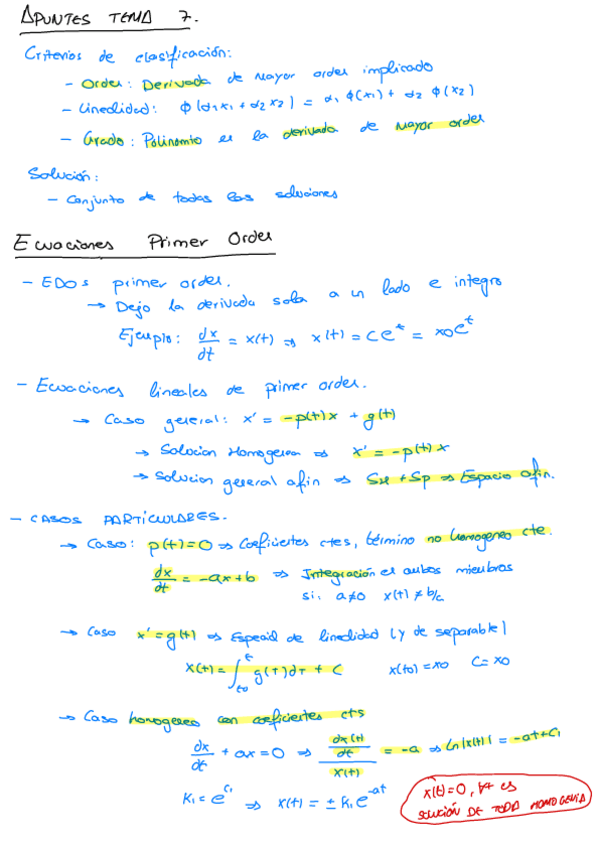 APUNTES TEMA 7.
Criterios de clasificación:
- Orden: Derivada de mayor orden implicado
- Linealidad: ϕ(α₁x₁ + α₂x₂) = α₁ ϕ(x₁) + α₂ ϕ(x₂)
- Grado: Polinomio en la derivada de mayor orden
Solución:
- Conjunto de todas las soluciones
Ecuaciones Primer Orden
- EDOs primer orden.
→ Dejo la derivada sola a un lado e integro
Ejemplo: dx/dt = x(t) ⇒ x(t) = Ce^t = x0e^t
- Ecuaciones lineales de primer orden.
→ Caso general: x' = -p(t)x + g(t)
→ Solucion Homogenea ⇒ x' = -p(t)x
→ Solucion general afin ⇒ SH + Sp ⇒ Espacio afin.
- CASOS PARTICULARES.
→ Caso: p(t)=0 ⇒ Coeficientes ctes, término no homogeneo cte.
dx/dt = -ax+b ⇒ Integración en ambos miembros
si: a≠0 x(t) ≠ b/c
→ Caso x'=g(t) ⇒ Especial de linealidad (y de separable)
x(t) = ∫_{t0}^{t} g(τ)dτ + C x(t0)=x0 C=x0
→ Caso homogeneo con coeficientes cts
dx/dt + ax=0 ⇒ (dx(t)/dt)/x(t) = -a ⇒ Ln|x(t)| = -at+C₁
K₁ = e^{C₁} ⇒ x(t) = ± K₁e^{-at}
x(t)=0, ∀t es
SOLUCIÓN DE TODA HOMOGENEA